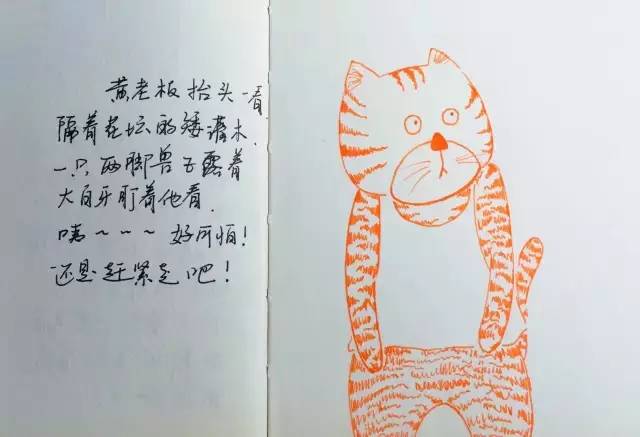 黄老板抬头一看
隔着花坛的矮灌木,
一只两脚兽正露着
大白牙盯着他看.
咦~~~好可怕!
还是赶紧走吧!